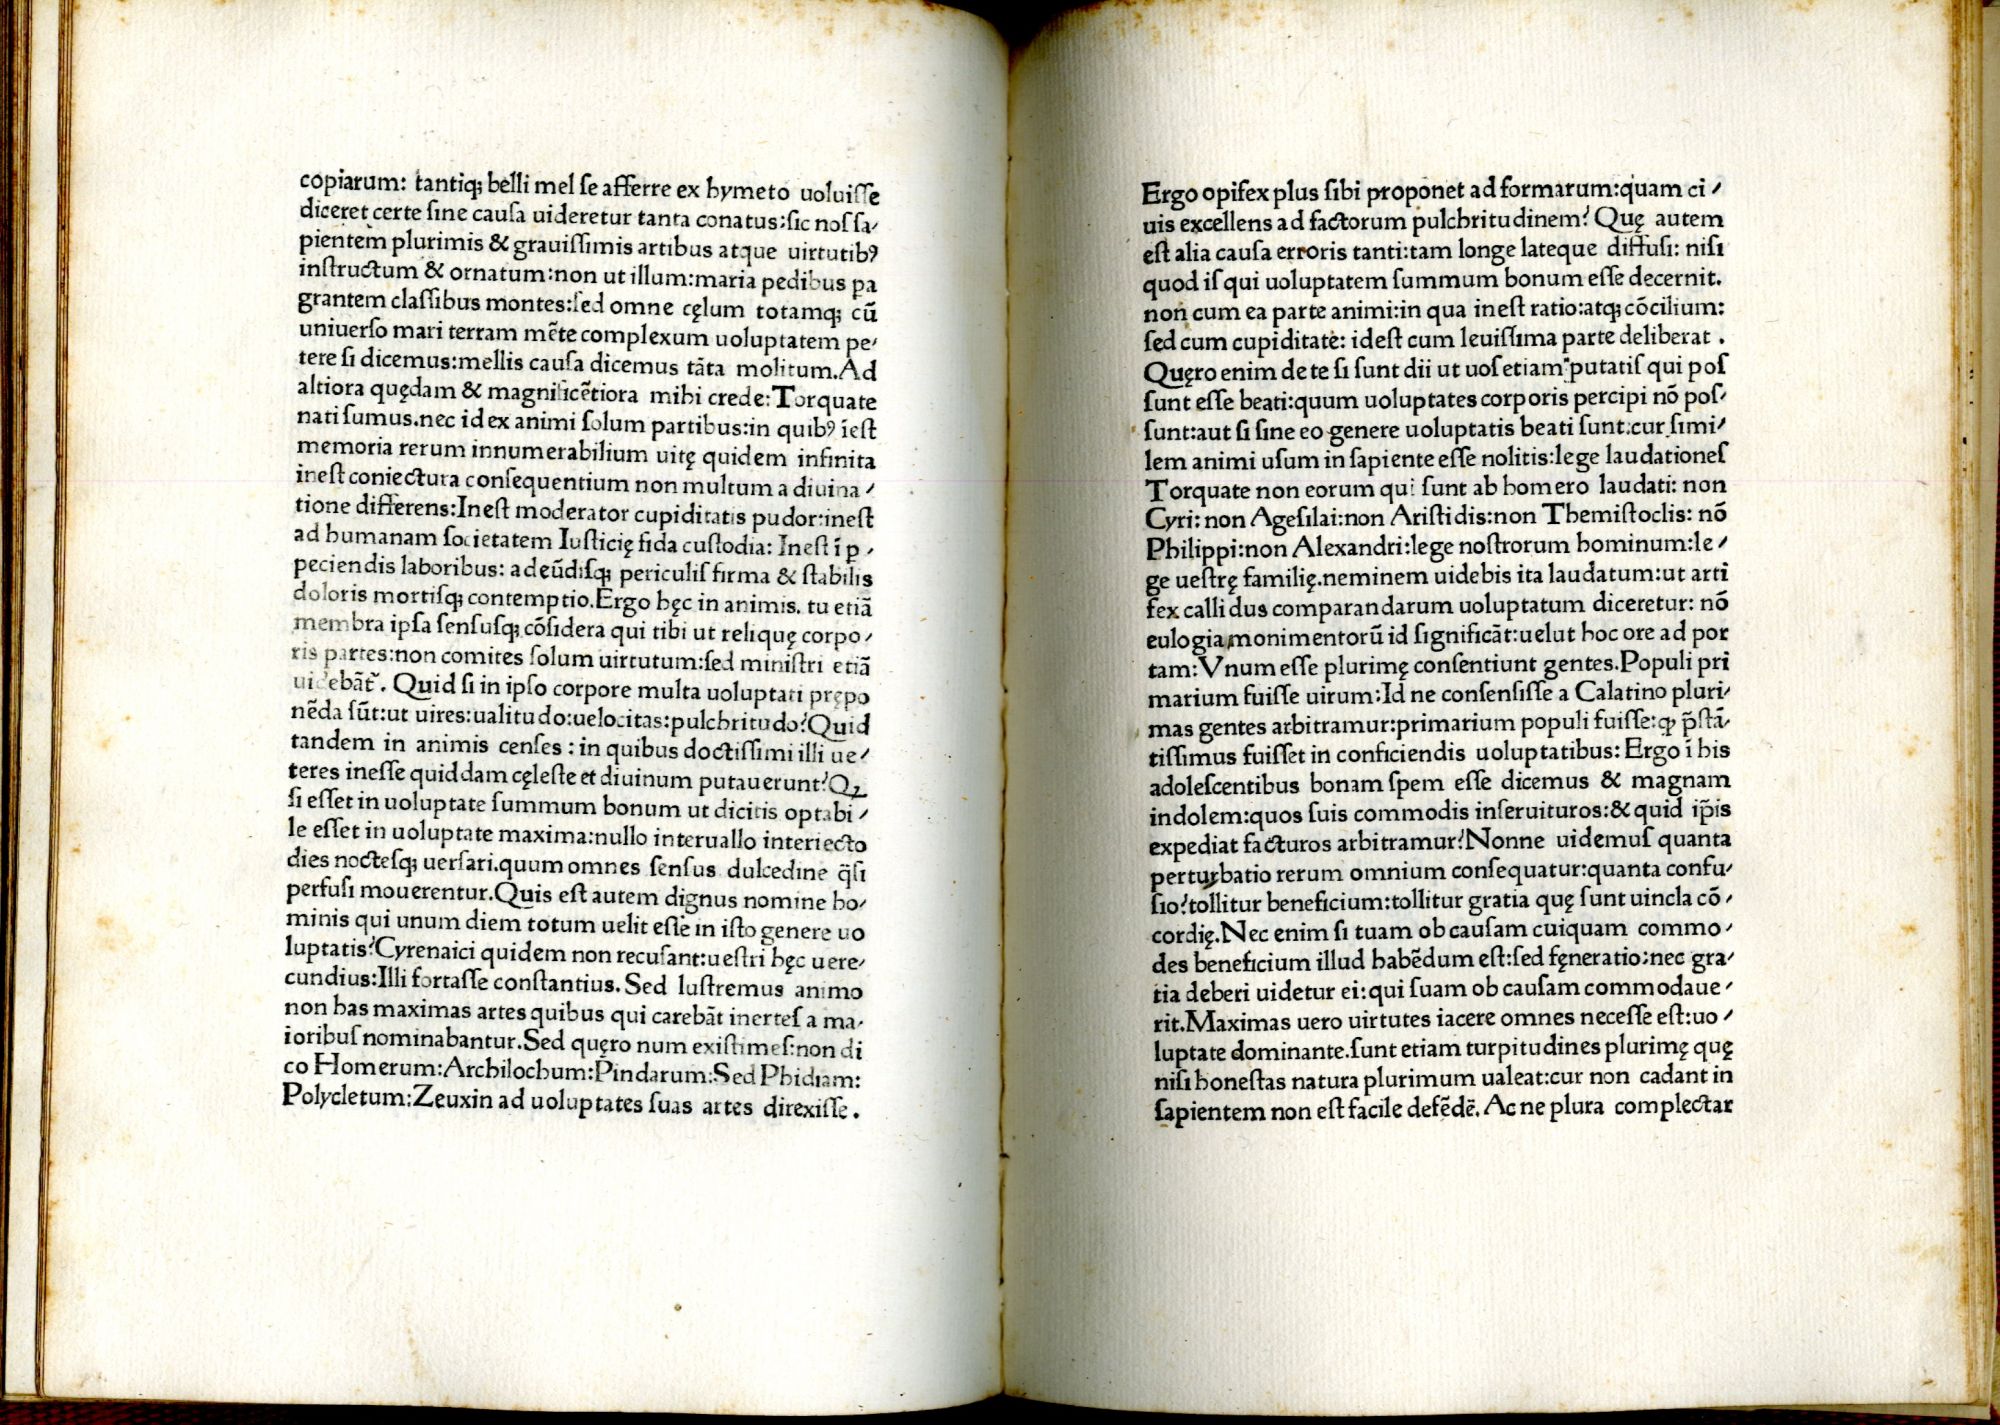 copiarum: tantiq; belli mel se afferre ex hymeto uoluiſſe
diceret certe ſine cauſa uideretur tanta conatus:ſic noſ ſa⸗
pientem plurimis & grauiſſimis artibus atque uirtutibꝰ
inſtructum & ornatum:non ut illum:maria pedibus pa
grantem claſſibus montes:ſed omne cęlum totamq; cū
uniuerſo mari terram mēte complexum uoluptatem pe⸗
tere ſi dicemus:mellis cauſa dicemus tāta molitum.Ad
altiora quędam & magnificētiora mihi crede:Torquate
nati ſumus.nec id ex animi ſolum partibus:in quibꝰ īeſt
memoria rerum innumerabilium uitę quidem infinita
ineſt coniectura conſequentium non multum a diuina⸗
tione differens:Ineſt moderator cupiditatis pudor:ineſt
ad humanam ſocietatem Iuſticię fida cuſtodia: Ineſt ī ꝑ⸗
peciendis laboribus: adeūdiſq; periculiſ firma & ſtabilis
doloris mortiſq; contemptio.Ergo hęc in animis. tu etiā
membra ipſa ſenſuſq; cōſidera qui tibi ut reliquę corpo⸗
ris partes:non comites ſolum uirtutum:ſed miniſtri etiā
uidebāt᷑. Quid ſi in ipſo corpore multa uoluptati prępo
nēda ſūt:ut uires:ualitudo:uelocitas:pulchritudo?Quid
tandem in animis cenſes: in quibus doctiſſimi illi ue⸗
teres ineſſe quiddam cęleſte et diuinum putauerunt?Qꝫ
ſi eſſet in uoluptate ſummum bonum ut dicitis optabi⸗
le eſſet in uoluptate maxima:nullo interuallo interiecto
dies nocteſq; uerſari.quum omnes ſenſus dulcedine q̄ſi
perfuſi mouerentur.Quis eſt autem dignus nomine ho⸗
minis qui unum diem totum uelit eſſe in iſto genere uo
luptatis?Cyrenaici quidem non recuſant:ueſtri hęc uere⸗
cundius:Illi fortaſſe conſtantius.Sed luſtremus animo
non has maximas artes quibus qui carebāt inerteſ a ma⸗
ioribuſ nominabantur.Sed quęro num exiſtimeſ:non di
co Homerum:Archilochum:Pindarum:Sed Phidiam:
Polycletum:Zeuxin ad uoluptates ſuas artes direxiſſe.
Ergo opifex plus ſibi proponet ad formarum:quam ci⸗
uis excellens ad factorum pulchritudinem? Quę autem
eſt alia cauſa erroris tanti:tam longe lateque diffuſi: niſi
quod iſ qui uoluptatem ſummum bonum eſſe decernit.
non cum ea parte animi:in qua ineſt ratio:atq; cōcilium:
ſed cum cupiditate: ideſt cum leuiſſima parte deliberat.
Quęro enim de te ſi ſunt dii ut uoſ etiam putatiſ qui poſ
ſunt eſſe beati:quum uoluptates corporis percipi nō poſ⸗
ſunt:aut ſi ſine eo genere uoluptatis beati ſunt:cur ſimi⸗
lem animi uſum in ſapiente eſſe nolitis:lege laudationeſ
Torquate non eorum qui ſunt ab homero laudati: non
Cyri: non Ageſilai:non Ariſtidis:non Themiſtoclis: nō
Philippi:non Alexandri:lege noſtrorum hominum:le⸗
ge ueſtrę familię.neminem uidebis ita laudatum:ut arti
fex callidus comparandarum uoluptatum diceretur: nō
eulogia monimentorū id ſignificāt:uelut hoc ore ad por
tam:Vnum eſſe plurimę conſentiunt gentes.Populi pri
marium fuiſſe uirum:Id ne conſenſiſſe a Calatino pluri⸗
mas gentes arbitramur:primarium populi fuiſſe:ꝙ p̄ſtā⸗
tiſſimus fuiſſet in conficiendis uoluptatibus: Ergo ī his
adoleſcentibus bonam ſpem eſſe dicemus & magnam
indolem:quos ſuis commodis inſeruituros:& quid ip̄is
expediat facturos arbitramur?Nonne uidemuſ quanta
perturbatio rerum omnium conſequatur:quanta confu⸗
ſio?tollitur beneficium:tollitur gratia quę ſunt uincla cō⸗
cordię.Nec enim ſi tuam ob cauſam cuiquam commo⸗
des beneficium illud habēdum eſt:ſed fęneratio:nec gra⸗
tia deberi uidetur ei:qui ſuam ob cauſam commodaue⸗
rit.Maximas uero uirtutes iacere omnes neceſſe eſt:uo⸗
luptate dominante.ſunt etiam turpitudines plurimę quę
niſi honeſtas natura plurimum ualeat:cur non cadant in
ſapientem non eſt facile defēdē. Ac ne plura complectar